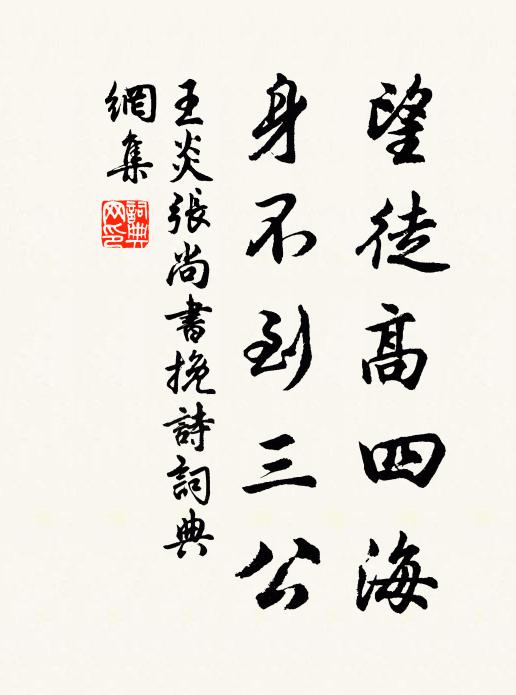 望徒高四海
身不到三公
王炎張尚書挽詩詞典
網集
詞典网印